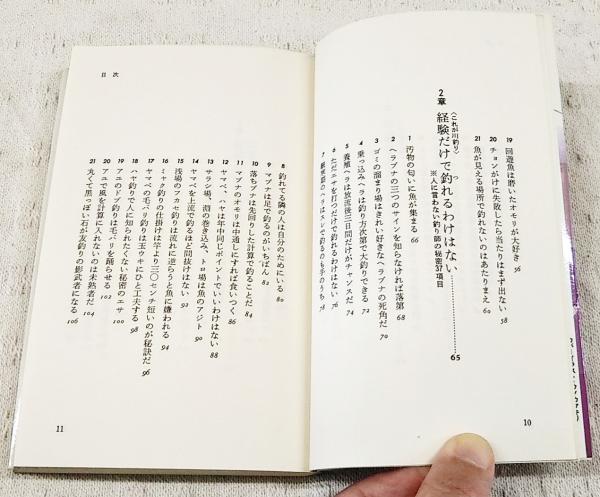 19 回遊魚は磨いたオモリが大好き 56
20 チョンがけに失敗したら当たりはまず出ない 58
21 魚が見える場所で釣れないのはあたりまえ 60
2章 〈これが川釣り〉
経験だけで釣れるわけはない 65
つ
※人に言わない釣り師の秘密37項目
1 汚物の匂いに魚が集まる 66
2 ヘラブナの三つのサインを知らなければ落第 68
3 ゴミの溜まり場はきれい好きなヘラブナの死角だ 70
4 乗っ込みヘラは釣り方次第で大釣りできる 72
5 養殖ヘラは放流後三日間だけがチャンスだ 74
6 ただエサを打つだけで釣れるわけはない 76
7 78
10
目次
8 釣れてる隣の人は自分のためにいる 80
9 マブナは足で釣るのがいちばん 82
10 落ちブナは先回りした計算で釣ることだ 84
11 マブナのオモリは中通しにすれば食いつく 86
12 ヤマベ、ハヤは年中同じポイントでいいわけはない 88
13 サラシ場、淵の巻き込み、トロ場は魚のアジト 90
14 ヤマベを上流で釣るほど間抜けはない 92
15 浅場のフカセ釣りは流れに逆らうと魚に嫌われる 94
16 ミャク釣りの仕掛けは竿より三〇センチ短いのが秘訣だ 96
17 ヤマベの毛バリ釣りは玉ウキにひと工夫する 98
18 ハヤ釣りで人に知られたくない秘密のエサ 100
19 アユのドブ釣りは毛バリを踊らせる 102
20 アユで風を計算に入れないのは未熟者だ 104
21 丸くて黒っぽい石が友釣りの影武者になる 106
11